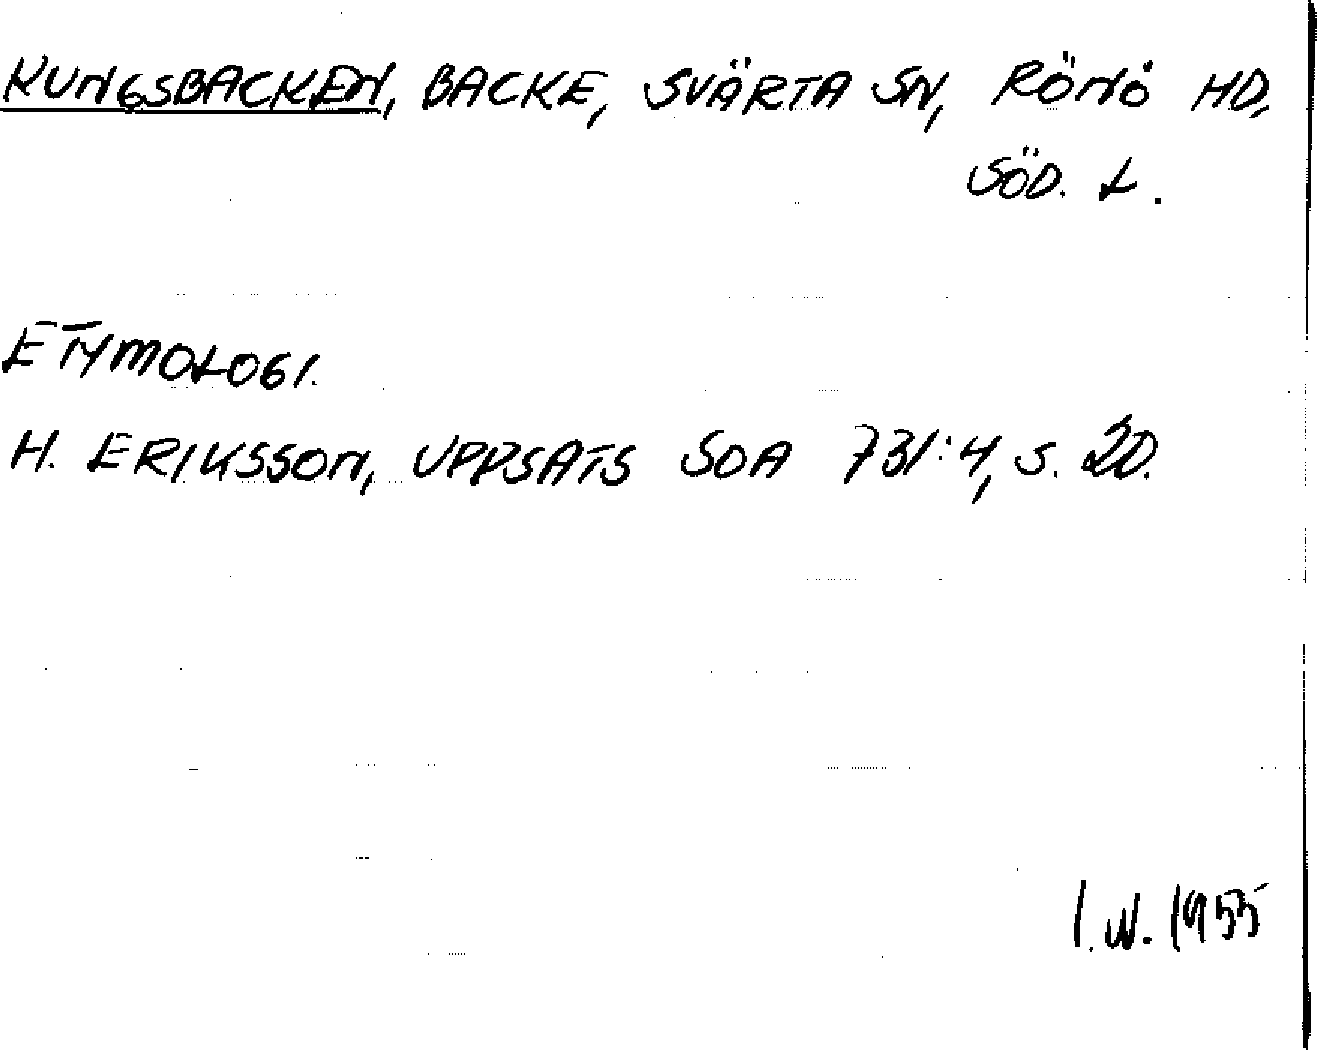 KUNGSBACKEN, BACKE, SVÄRTA SN, RÖNÖ HD,
SÖD. L.
ETYMOLOGI.
H. ERIKSSON, UPPSATS SOA 731:4, S. 20.
I.W. 1955